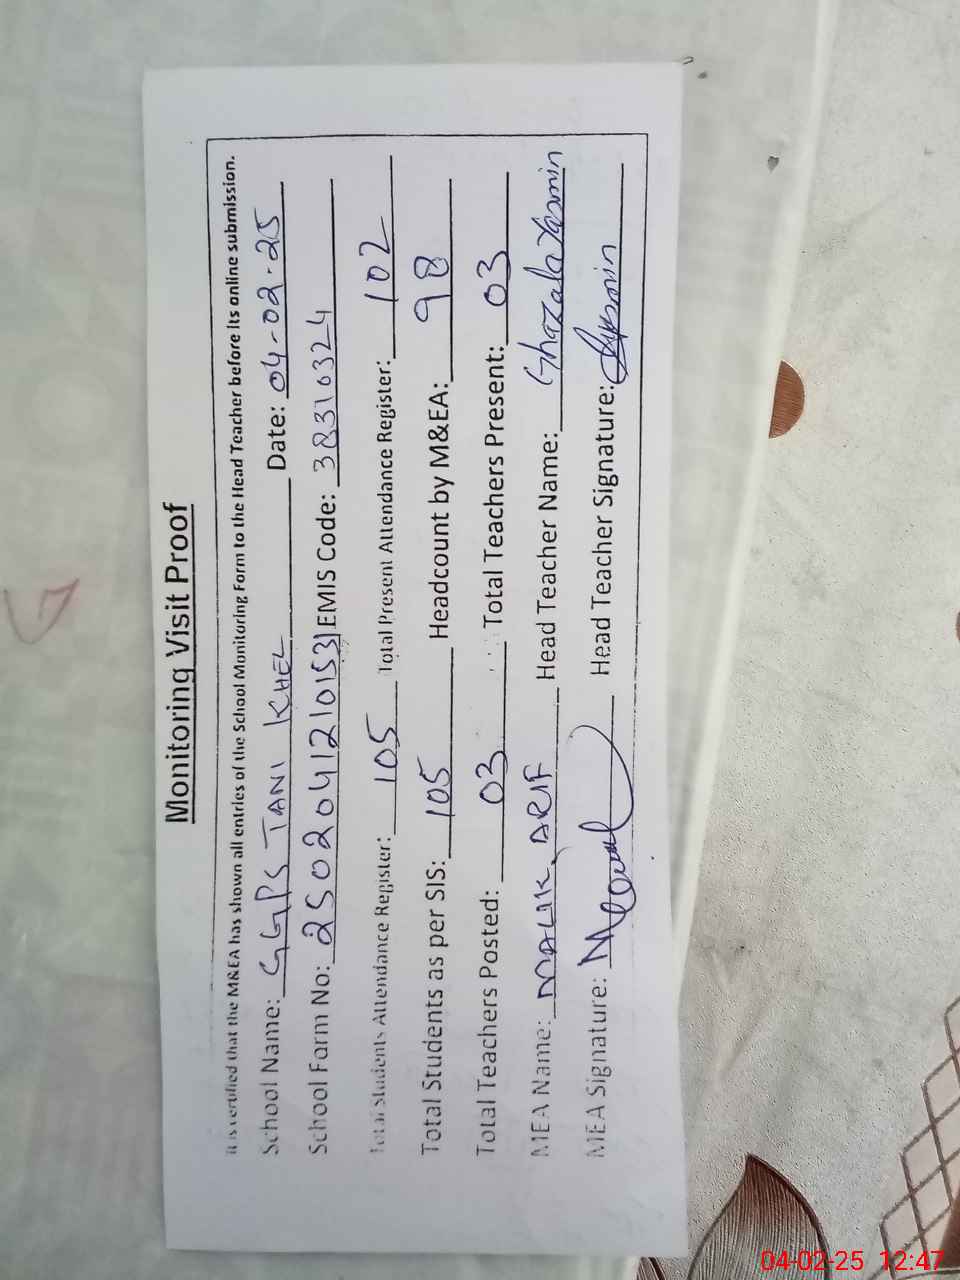 Monitoring Visit Proof
It is certified that the M&EA has shown all entries of the School Monitoring Form to the Head Teacher before its online submission.
School Name: GGPS TANI KHEL Date: 04-02-25
School Form No: 2502041210153 EMIS Code: 38310324
Total Students Attendance Register: 105 Total Present Attendance Register: 102
Total Students as per SIS: 105 Headcount by M&EA: 98
Total Teachers Posted: 03 Total Teachers Present: 03
MEA Name: MALIK ARIF Head Teacher Name: Ghazala Yasmin
MEA Signature: Head Teacher Signature: Yasmin
04-02-25 12:47